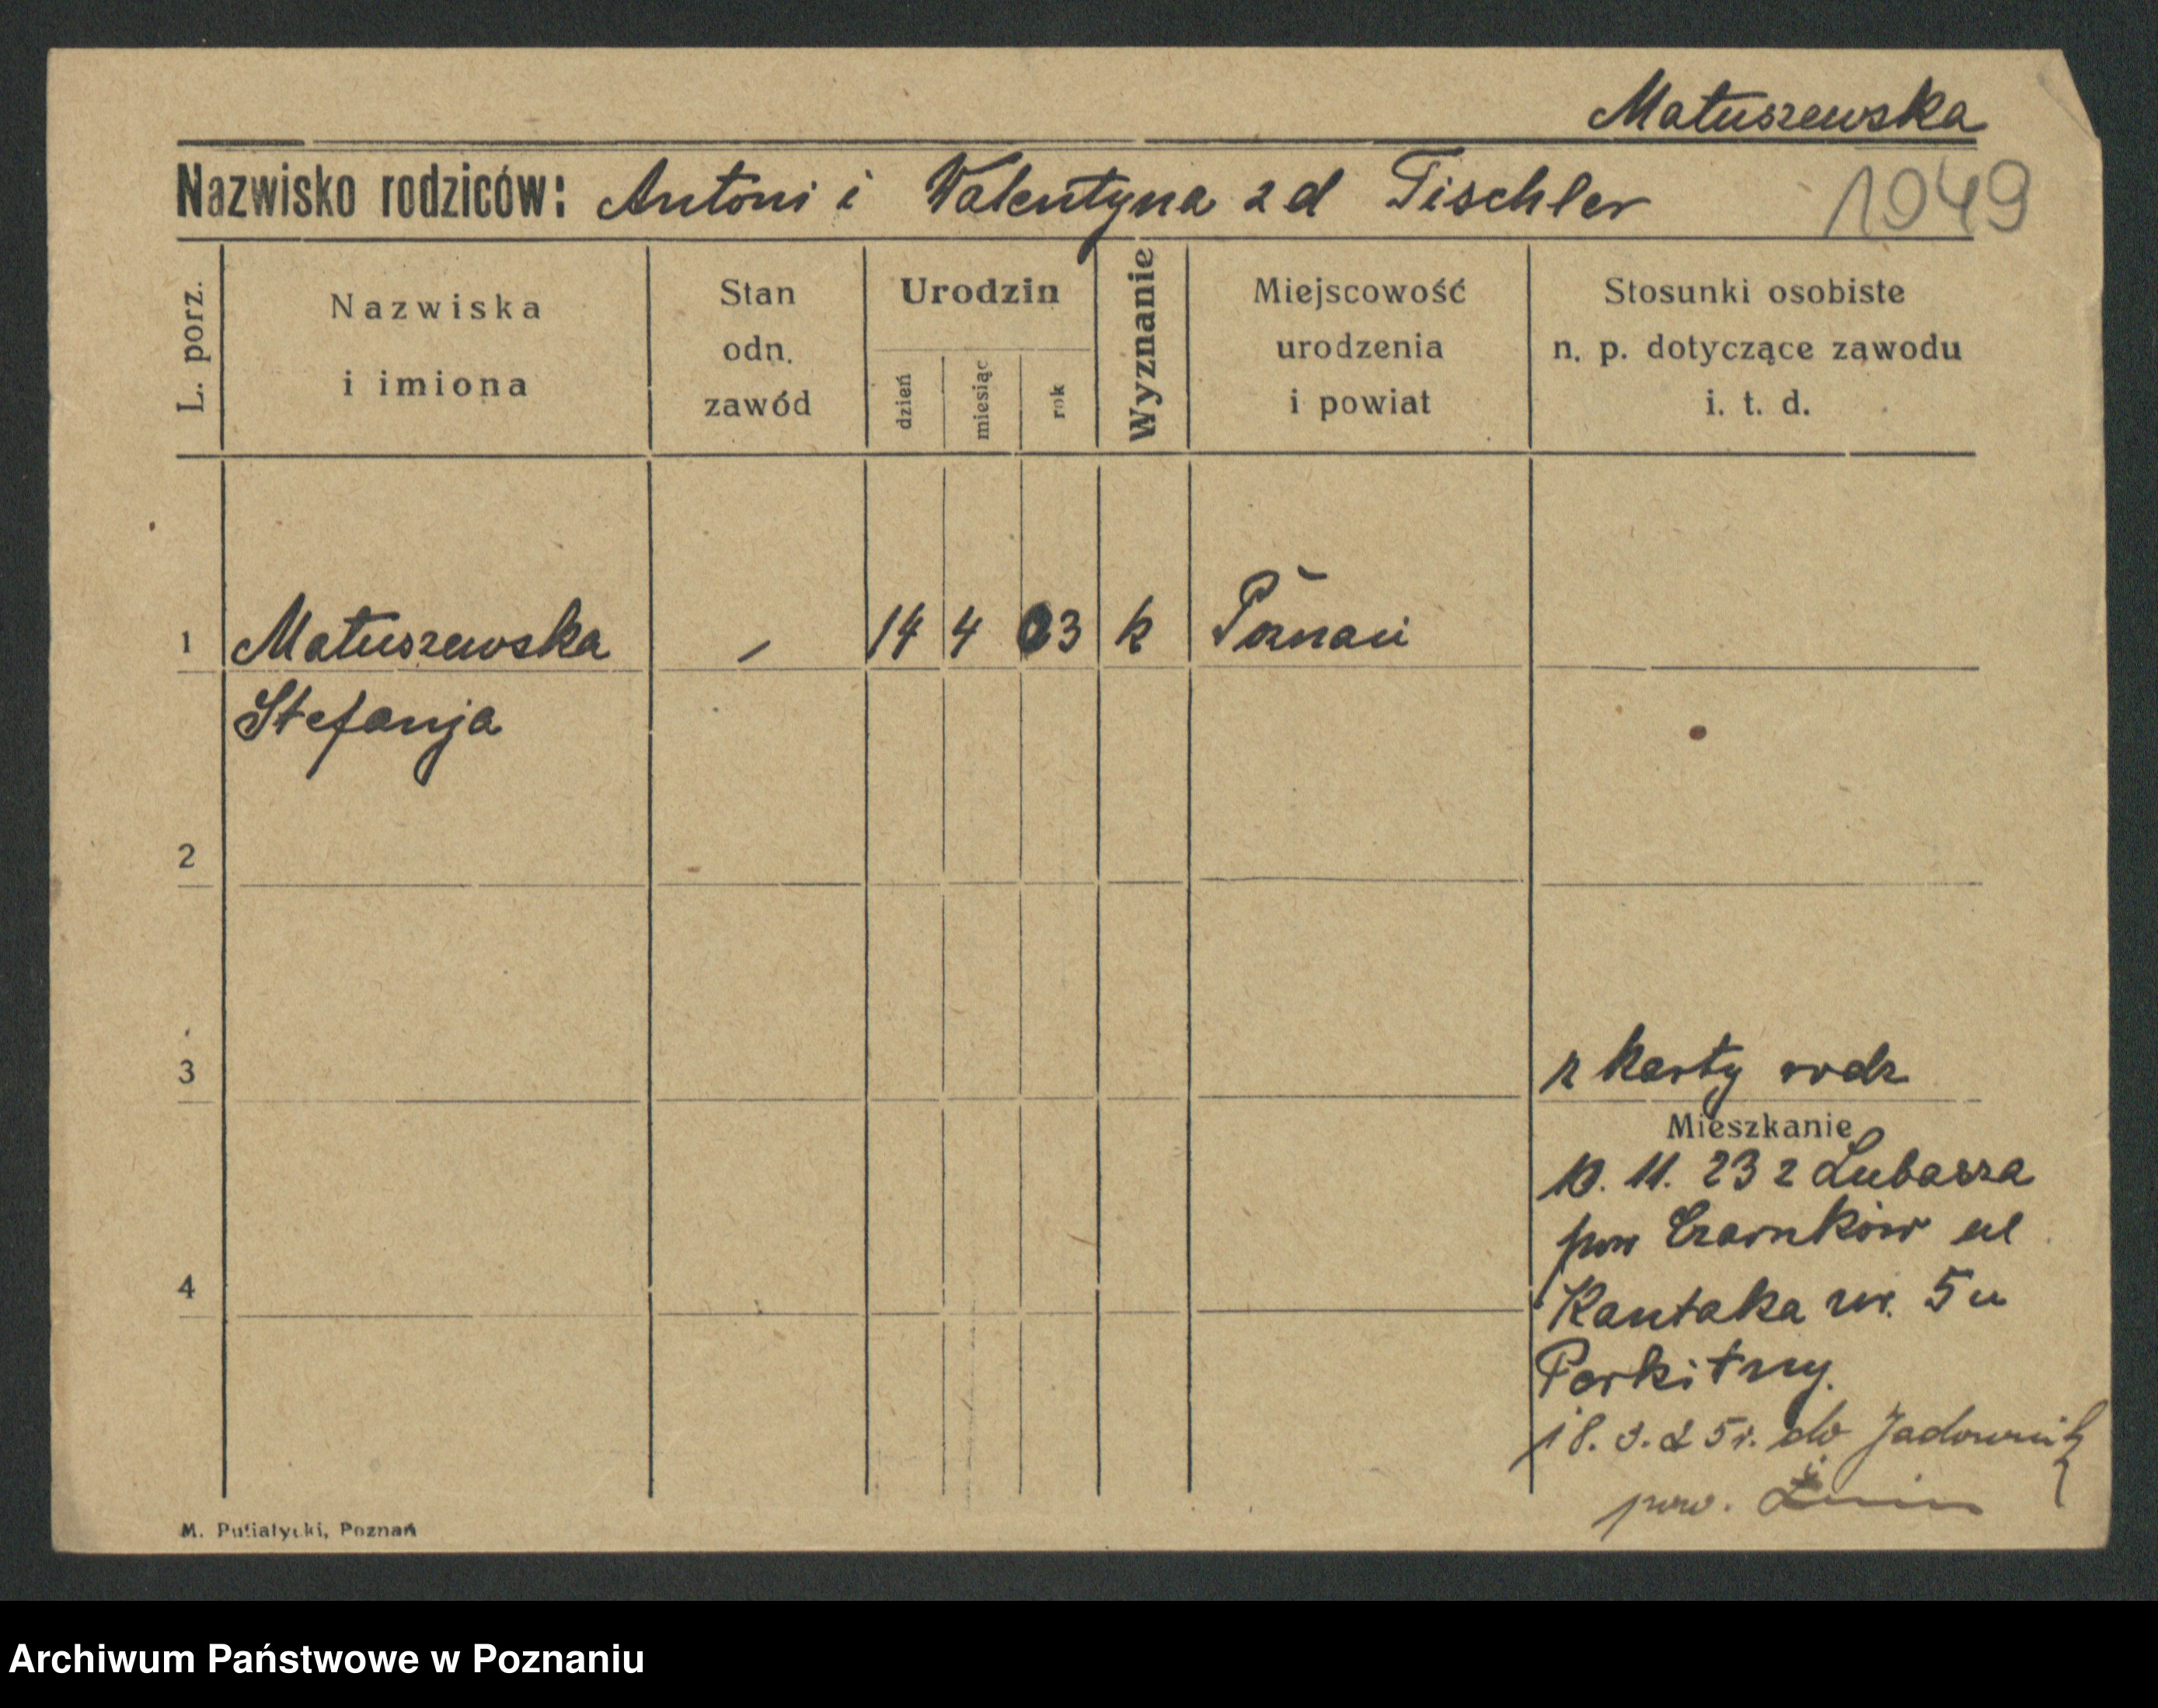 Matuszewska
Nazwisko rodziców: Antoni i Walentyna z d Tischler
1949
L. porz.
Nazwiska
i imiona
Stan
odn.
zawód
Urodzin
dzień
miesiąc
rok
Wyznanie
Miejscowość
urodzenia
i powiat
Stosunki osobiste
n. p. dotyczące zawodu
i. t. d.
1 Matuszewska - 14 4 03 k Poznań
Stefanja
2
3
z karty rodz
Mieszkanie
10. 11. 23 z Lubasza
pow Czarnków ul
4
Kantaka nr. 5 u
Parkitny.
18. 3. 25 r. do Jadownik
pow. Żnin
M. Putiatycki, Poznań
Archiwum Państwowe w Poznaniu